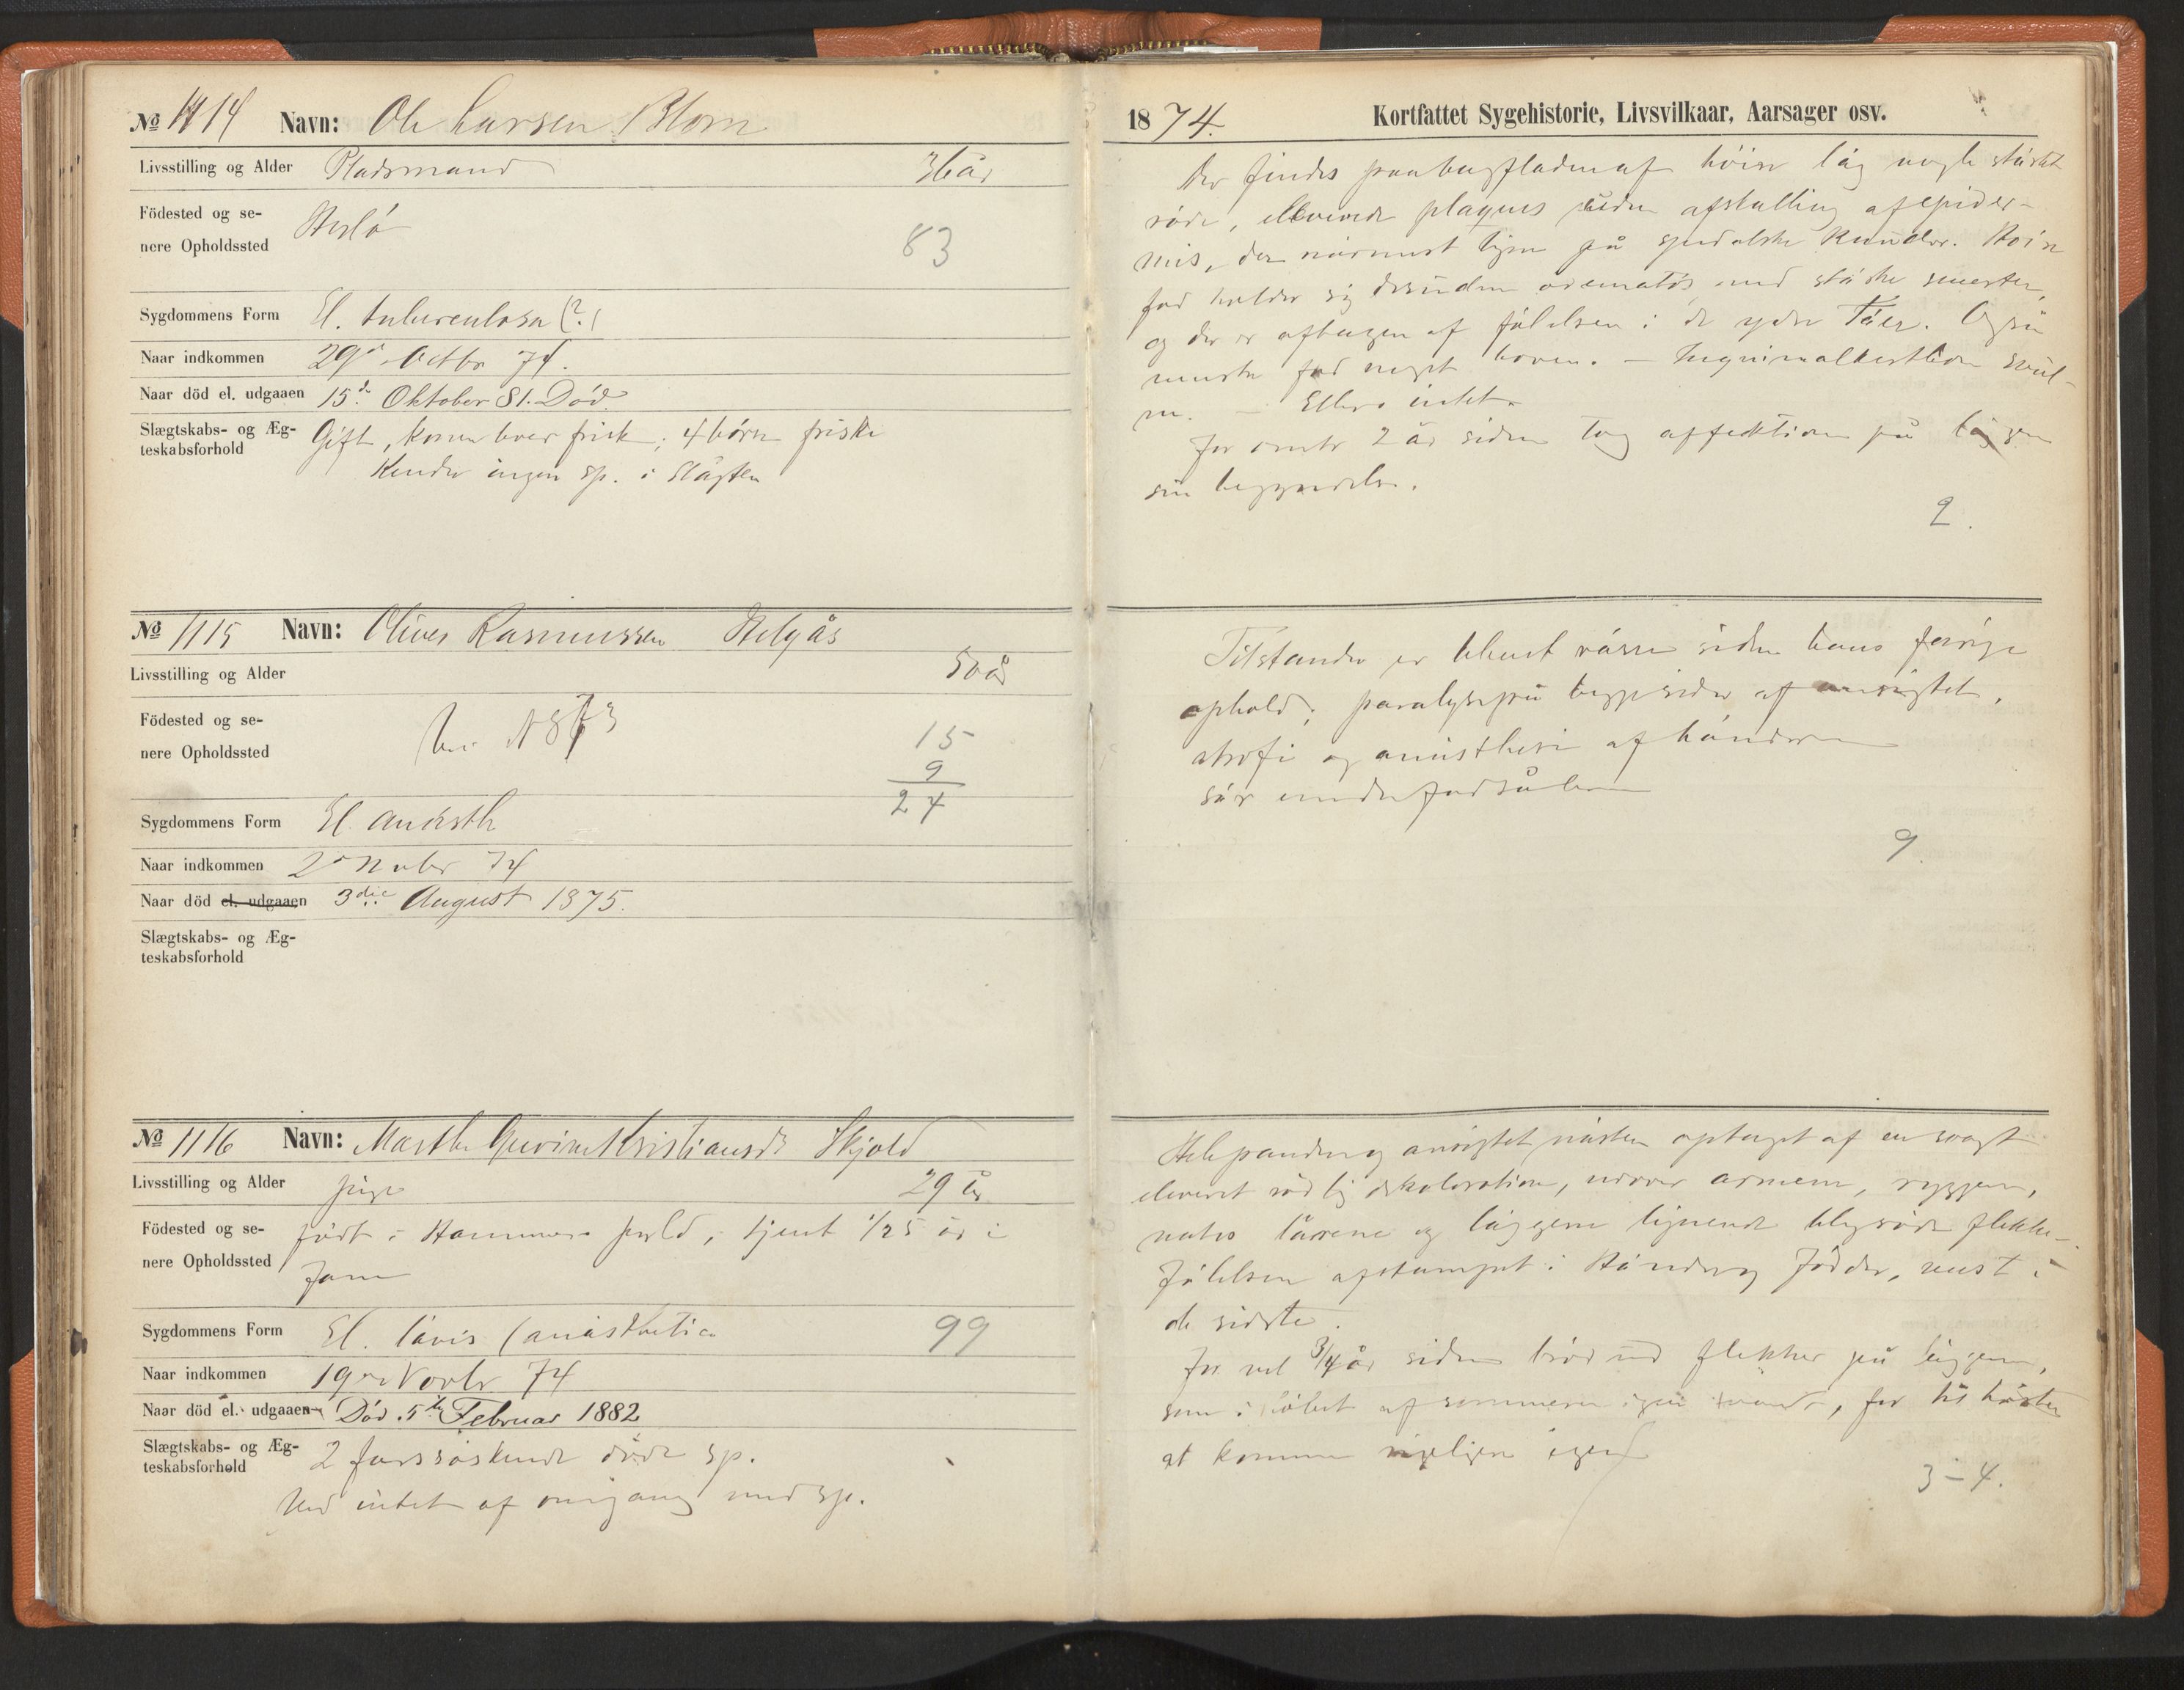 No 1114 Navn: Ole Larsen Blom
Livsstilling og Alder Pladsmand 36 år
Födested og se-
nere Opholdssted Herlö 83
Sygdommens Form El. tuberculosa (?)
Naar indkommen 29de Octbr 74.
Naar död el. udgaaen 15de Oktober 81. Död
Slægtskabs- og Æg-
teskabsforhold Gift, konen frisk; 4 börn friske
Kender ingen sp. i Slägten
No 1115 Navn: Oliver Rasmussen Helgås
Livsstilling og Alder 50 år
Födested og se-
nere Opholdssted
15
9
24
Sygdommens Form El. anästh
Naar indkommen 2de Novbr 74
Naar död el. udgaaen 3die August 1875.
Slægtskabs- og Æg-
teskabsforhold
No 1116 Navn: Marthe Kristiansdr Skjold
Livsstilling og Alder pige 29 år
Födested og se- födt i Hammers prgld, tjent 1/25 år i
nere Opholdssted Fane
Sygdommens Form El. lävis (anästhetica 99
Naar indkommen 19de Novbr 74
Naar död el. udgaaen Död 5te Februar 1882
Slægtskabs- og Æg-
teskabsforhold 2 farssöskende döde sp.
Ved intet af omgang med sp.
1874. Kortfattet Sygehistorie, Livsvilkaar, Aarsager osv.
Der findes paa bagfladen af höire läg nogle stärkt
röde, eleverede plaques uden afskalling af epider-
mis, der närmest ligne på spedalske Knuder. Höire
fod holder sig desuden ödematös med stärke smerter,
og der er aftagen af fölelsen i de ydre Täer. Også
venstre fod noget hoven. – Inguinalkjertlerne svul-
ne. – Ellers intet.
For omtr 2 år siden tog affektionen på läggen
sin begyndelse.
2.
Tilstanden er blevet värre siden hans forrige
ophold; paralyse på begge sider af ansigtet,
atrofi og anästhesi af händerne
sår under fodsålerne
9.
Hele panden og ansigtet nästen optaget af en svagt
eleveret rödlig diskoloration, udover armene, ryggen,
nates lårene og läggene lignende blegröde flekke
Fölelsen afstumpet i Händer og Födder, mest i
de sidste.
For vel 3/4 år siden bröd ud flekker på läggene,
som i löbet af sommeren igen svandt, for til hösten
at komme igen
3–4.